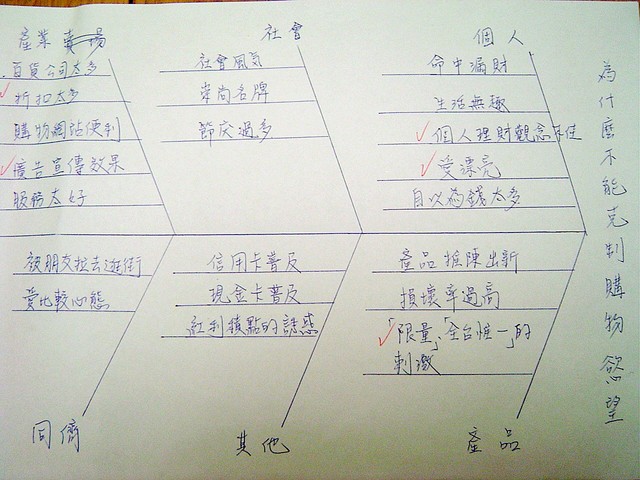 產業
百貨公司太多
折扣太多
購物網站便利
廣告宣傳效果
服務太好
社會
社會風气
崇尚名牌
節庆過多
個人
命中漏財
生活無趣
個人理財觀念不佳
愛漂亮
自以為錢太多
被朋友拉去逛街
愛比較心態
同儕
信用卡普及
現金卡普及
紅利積點的誘惑
其他
產品推陳出新
損壞率過高
「限量」、「全台唯一」的
刺激
產品
為什麼不能克制購物慾望